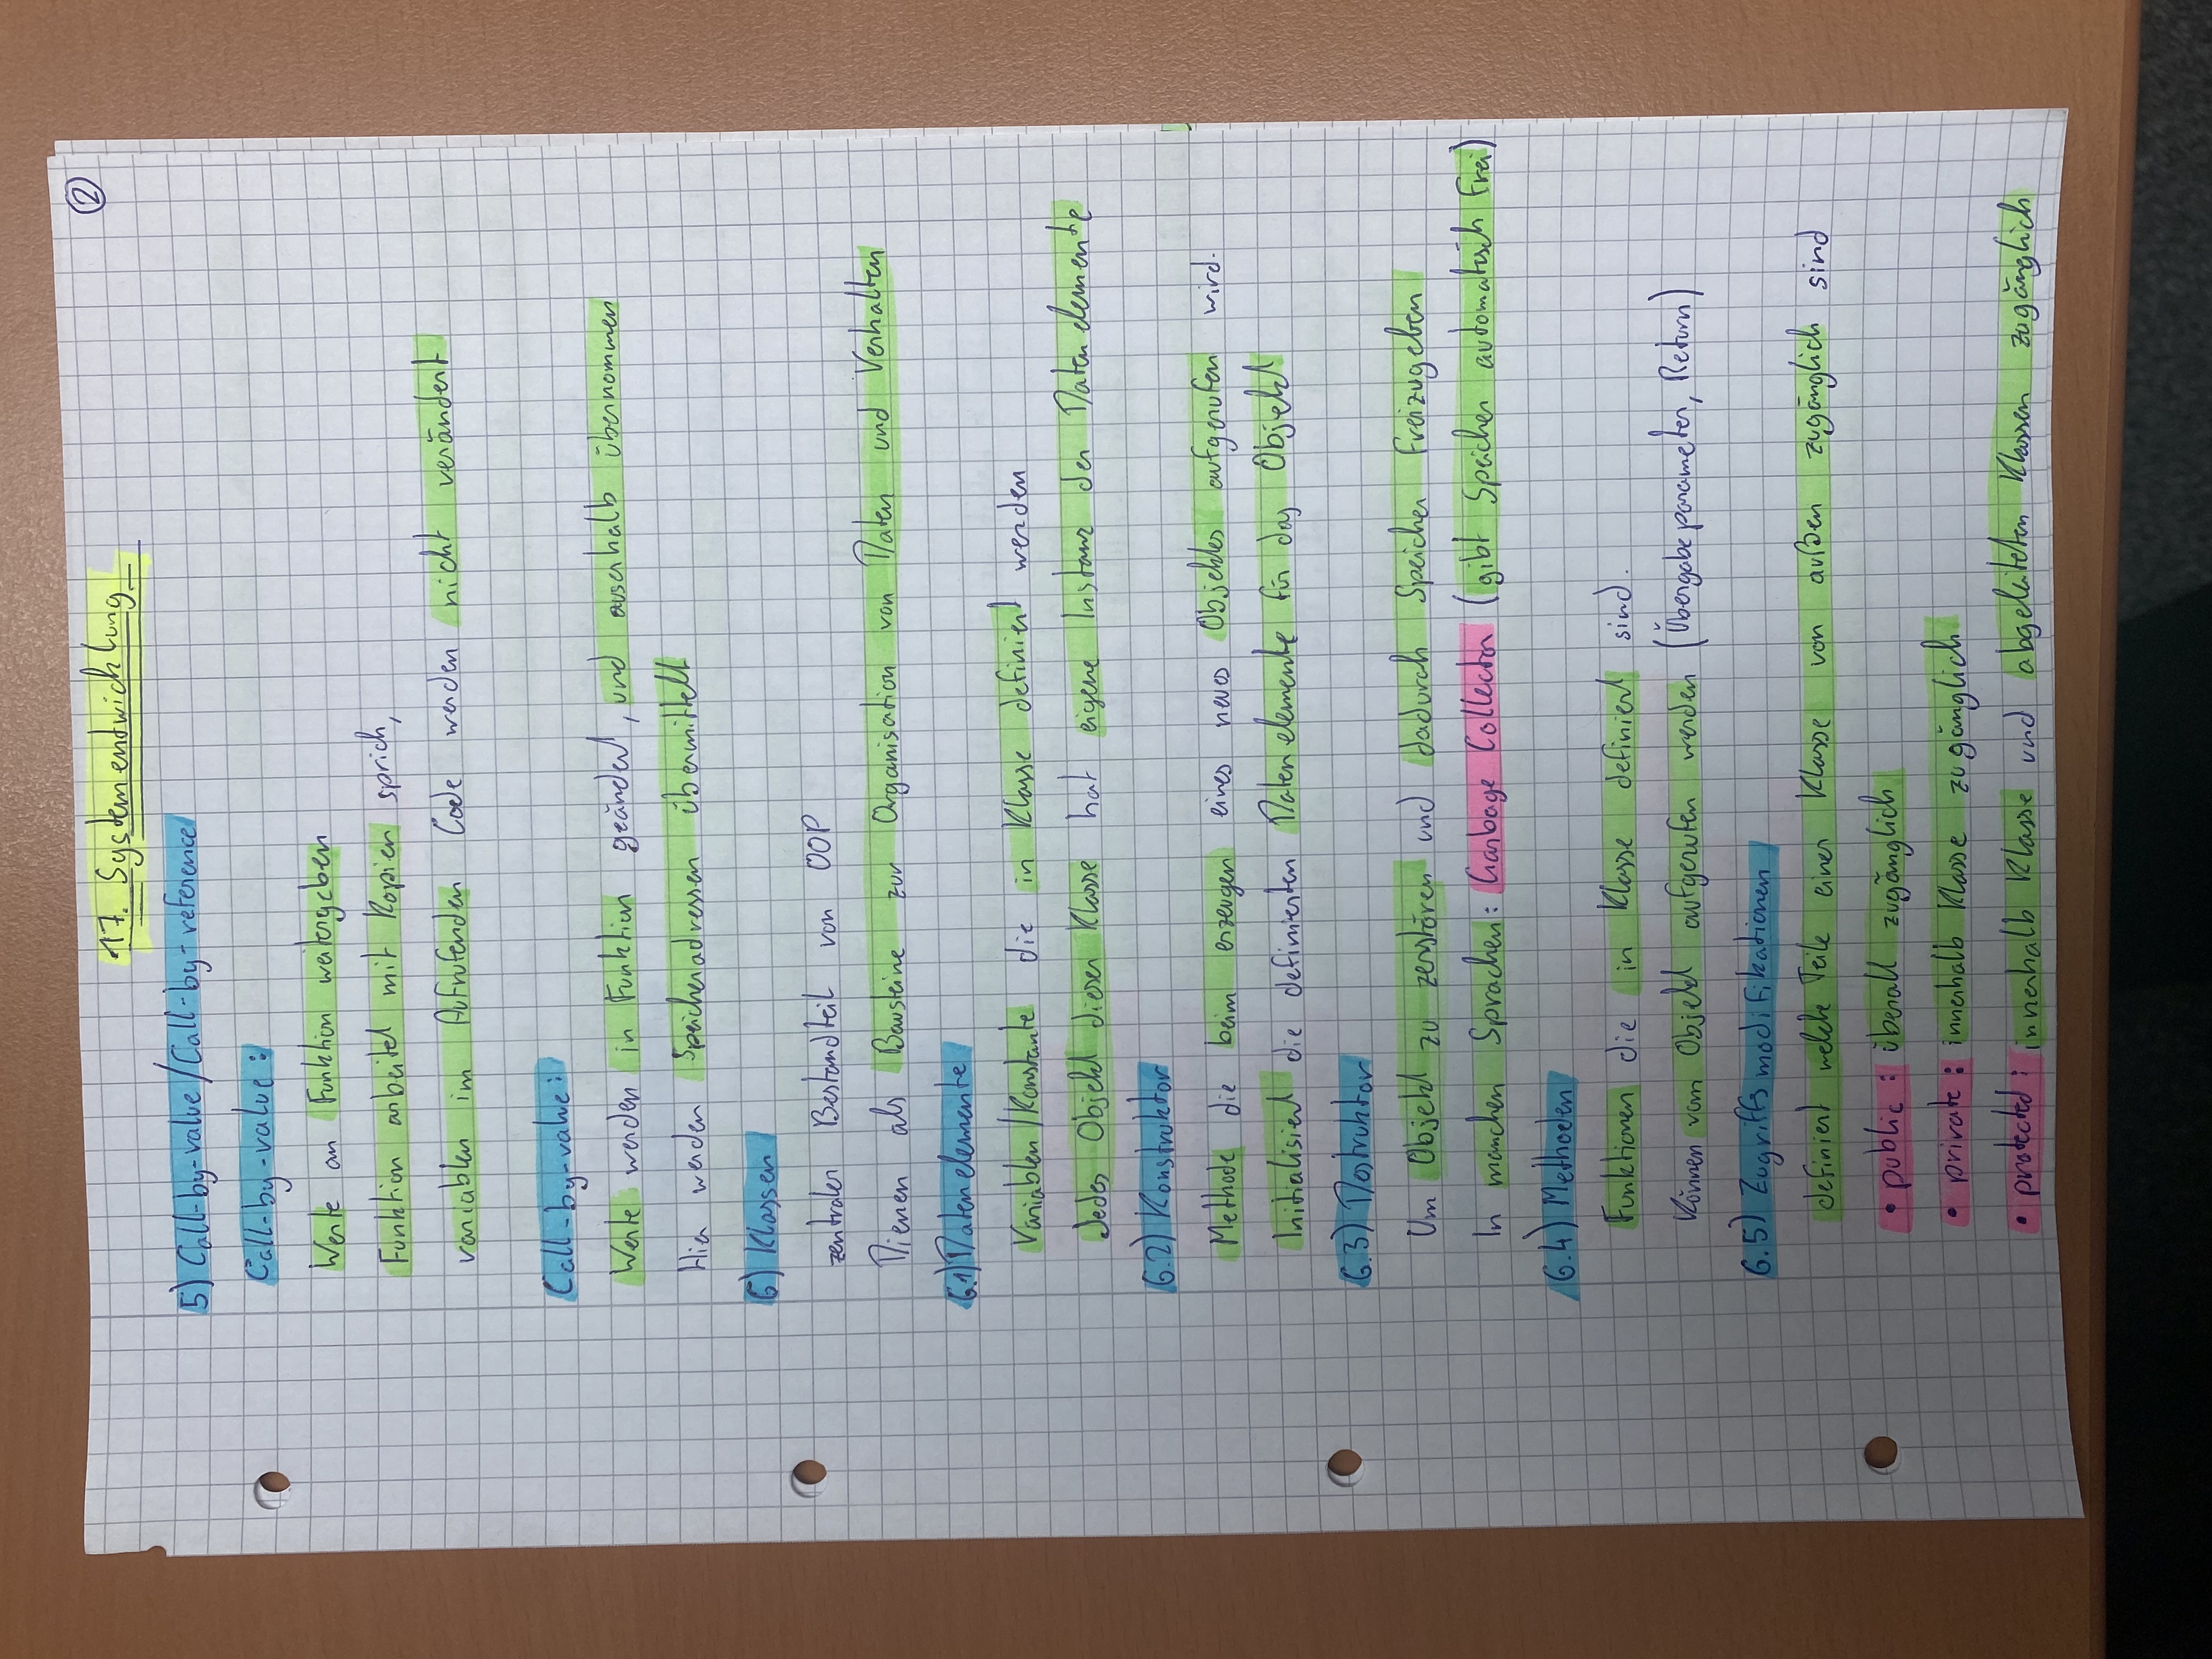 17. Systementwicklung
2
5) Call-by-value/Call-by-reference
Call-by-value:
Werte an Funktion weitergeben
Funktion arbeitet mit Kopien sprich,
variablen im Aufrufenden Code werden nicht verändert
Call-by-value:
Werte werden in Funktion geändert, und auserhalb übernommen
Hier werden Speicheradressen übermittelt
6) Klassen
zentraler Bestandteil von OOP
Dienen als Bausteine zur Organisation von Daten und Verhalten
6.1) Datenelemente
Variablen/Konstante die in Klasse definiert werden
Jedes Objekt dieser Klasse hat eigene Instanz der Datenelemente
6.2) Konstruktor
Methode die beim erzeugen eines neues Objektes aufgerufen wird.
Initialisiert die definierten Datenelemente für das Objekt
6.3) Destruktor
Um Objekt zu zerstören und dadurch Speicher freizugeben
In manchen Sprachen: Garbage Collector (gibt Speicher automatisch frei)
6.4) Methoden
Funktionen die in Klasse definiert sind.
Können vom Objekt aufgerufen werden (Übergabeparameter, Return)
6.5) Zugriffsmodifikationen
definiert welche Teile einer Klasse von außen zugänglich sind
• public: überall zugänglich
• private: innerhalb Klasse zugänglich
• protected: innerhalb Klasse und abgeleiteten Klassen zugänglich